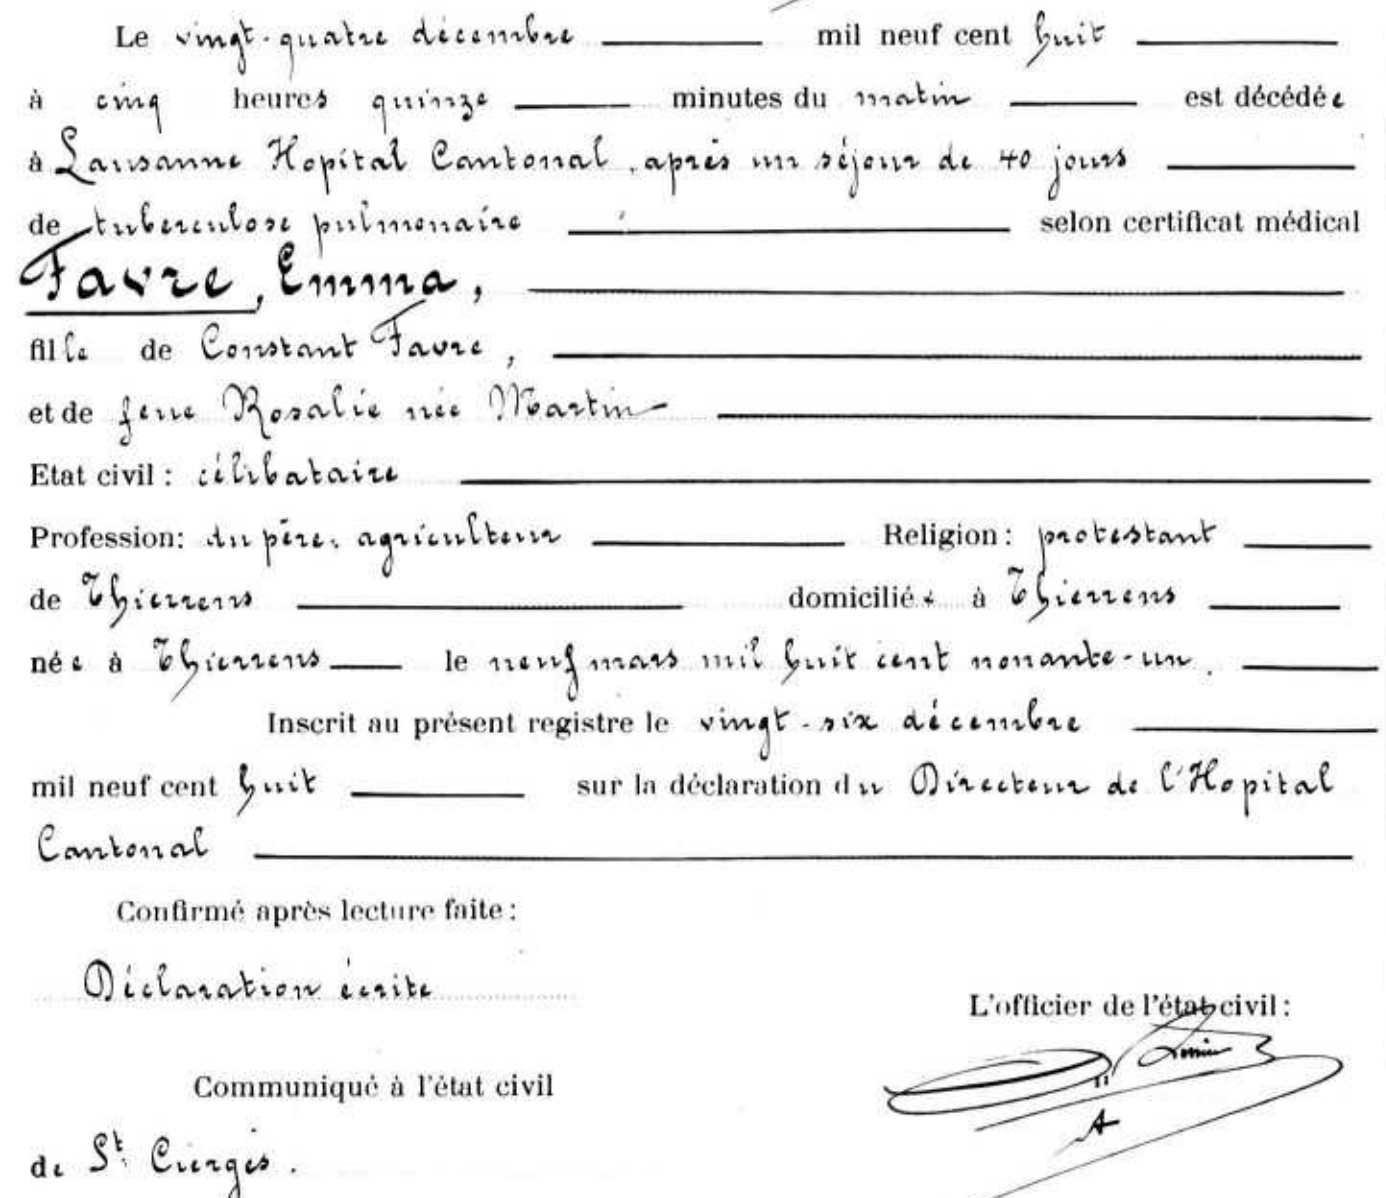 Le vingt-quatre décembre mil neuf cent huit
à cinq heures quinze minutes du matin est décédée
à Lausanne Hopital Cantonal, après un séjour de 40 jours
de tuberculose pulmonaire selon certificat médical
Favre, Emma,
fille de Constant Favre,
et de feue Rosalie née Martin
Etat civil : célibataire
Profession: du père, agriculteur Religion : protestant
de Thierrens domiciliée à Thierrens
née à Thierrens le neuf mars mil huit cent nonante-un.
Inscrit au présent registre le vingt-six décembre
mil neuf cent huit sur la déclaration du Directeur de l'Hopital
Cantonal
Confirmé après lecture faite :
Déclaration écrite
L'officier de l'état civil :
Communiqué à l'état civil
de St. Cierges.